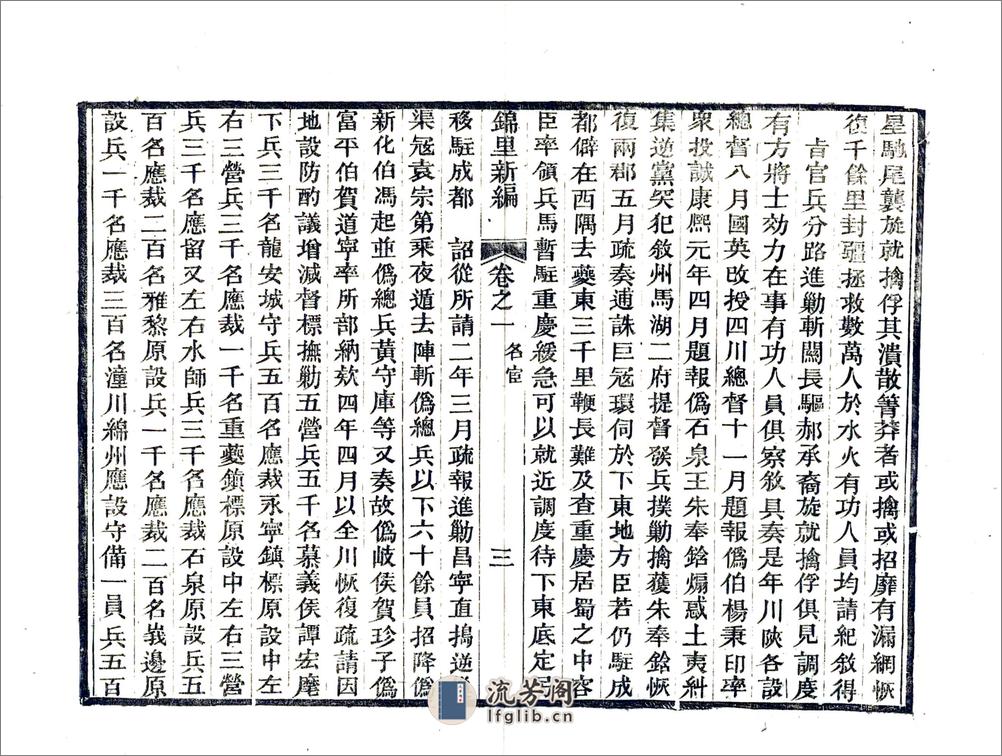 星馳尾襲旋就擒俘其潰散箐莽者或擒或招靡有漏網恢
復千餘里封疆拯救數萬人於水火有功人員均請紀敘得
旨官兵分路進勦斬關長驅郝承裔旋就擒俘俱見調度
有方將士効力在事有功人員俱察敘具奏是年川陝各設
總督八月國英改授四川總督十一月題報偽伯楊秉印率
衆投誠康熙元年四月題報偽石泉王朱奉鋡煽惑土夷糾
集逆黨突犯敘州馬湖二府提督發兵撲勦擒獲朱奉鋡恢
復兩郡五月疏奏逋誅巨冦環伺於下東地方臣若仍駐成
都僻在西隅去夔東三千里鞭長難及查重慶居蜀之中容
臣率領兵馬暫駐重慶緩急可以就近調度待下東底定
錦里新編 卷之一 名宦 三
移駐成都 詔從所請二年三月疏報進勦昌寧直搗逆
渠冦袁宗第乗夜遁去陣斬偽總兵以下六十餘員招降偽
新化伯馮起並偽總兵黃守庫等又奏故偽岐侯賀珍子偽
富平伯賀道寧率所部納欵四年四月以全川恢復疏請因
地設防酌議增減督標撫勦五營兵五千名慕義侯譚宏麾
下兵三千名龍安城守兵五百名應裁永寧鎮標原設中左
右三營兵三千名應裁一千名重夔鎮標原設中左右三營
兵三千名應留又左右水師兵三千名應裁石泉原設兵五
百名應裁二百名雅黎原設兵一千名應裁二百名峩邊原
設兵一千名應裁三百名潼川綿州應設守備一員兵五百
流芳阁
lfglib.cn